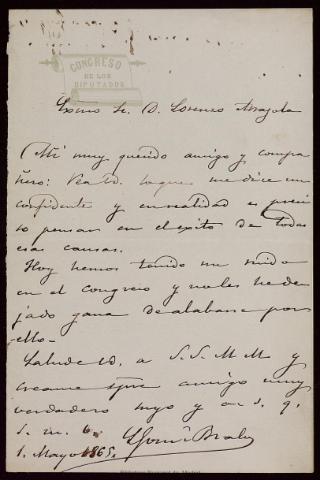 CONGRESO
DE LOS
DIPUTADOS
Exmo Sr. D. Lorenzo Arrazola
Mi muy querido amigo y compa
ñero: Vea Vd. lo que me dice un
confidente y en realidad es preci
so pensar en el exito de todas
esas causas.
Hoy hemos tenido un
en el Congreso y no les he de
jado gana de alabarse por
ello.
Salude Vd. a S. S. M M y
creame spre amigo muy
verdadero suyo y q.
s. m. b.
1. Mayo 1865.
Biblioteca Nacional de